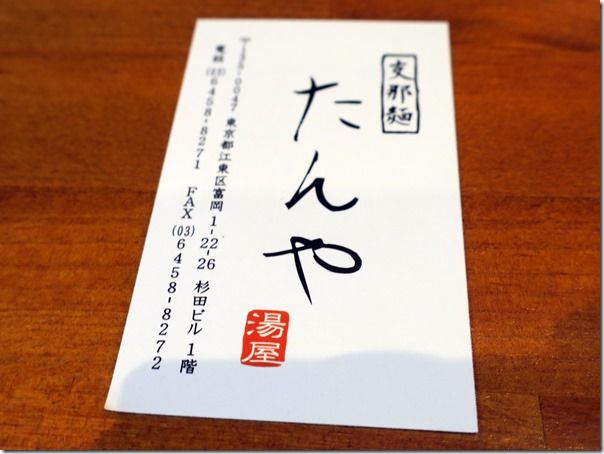 支那麺
たんや
湯屋
〒135-0047 東京都江東区富岡1-22-26 杉田ビル1階
電話(03)6458-8271 FAX(03)6458-8272